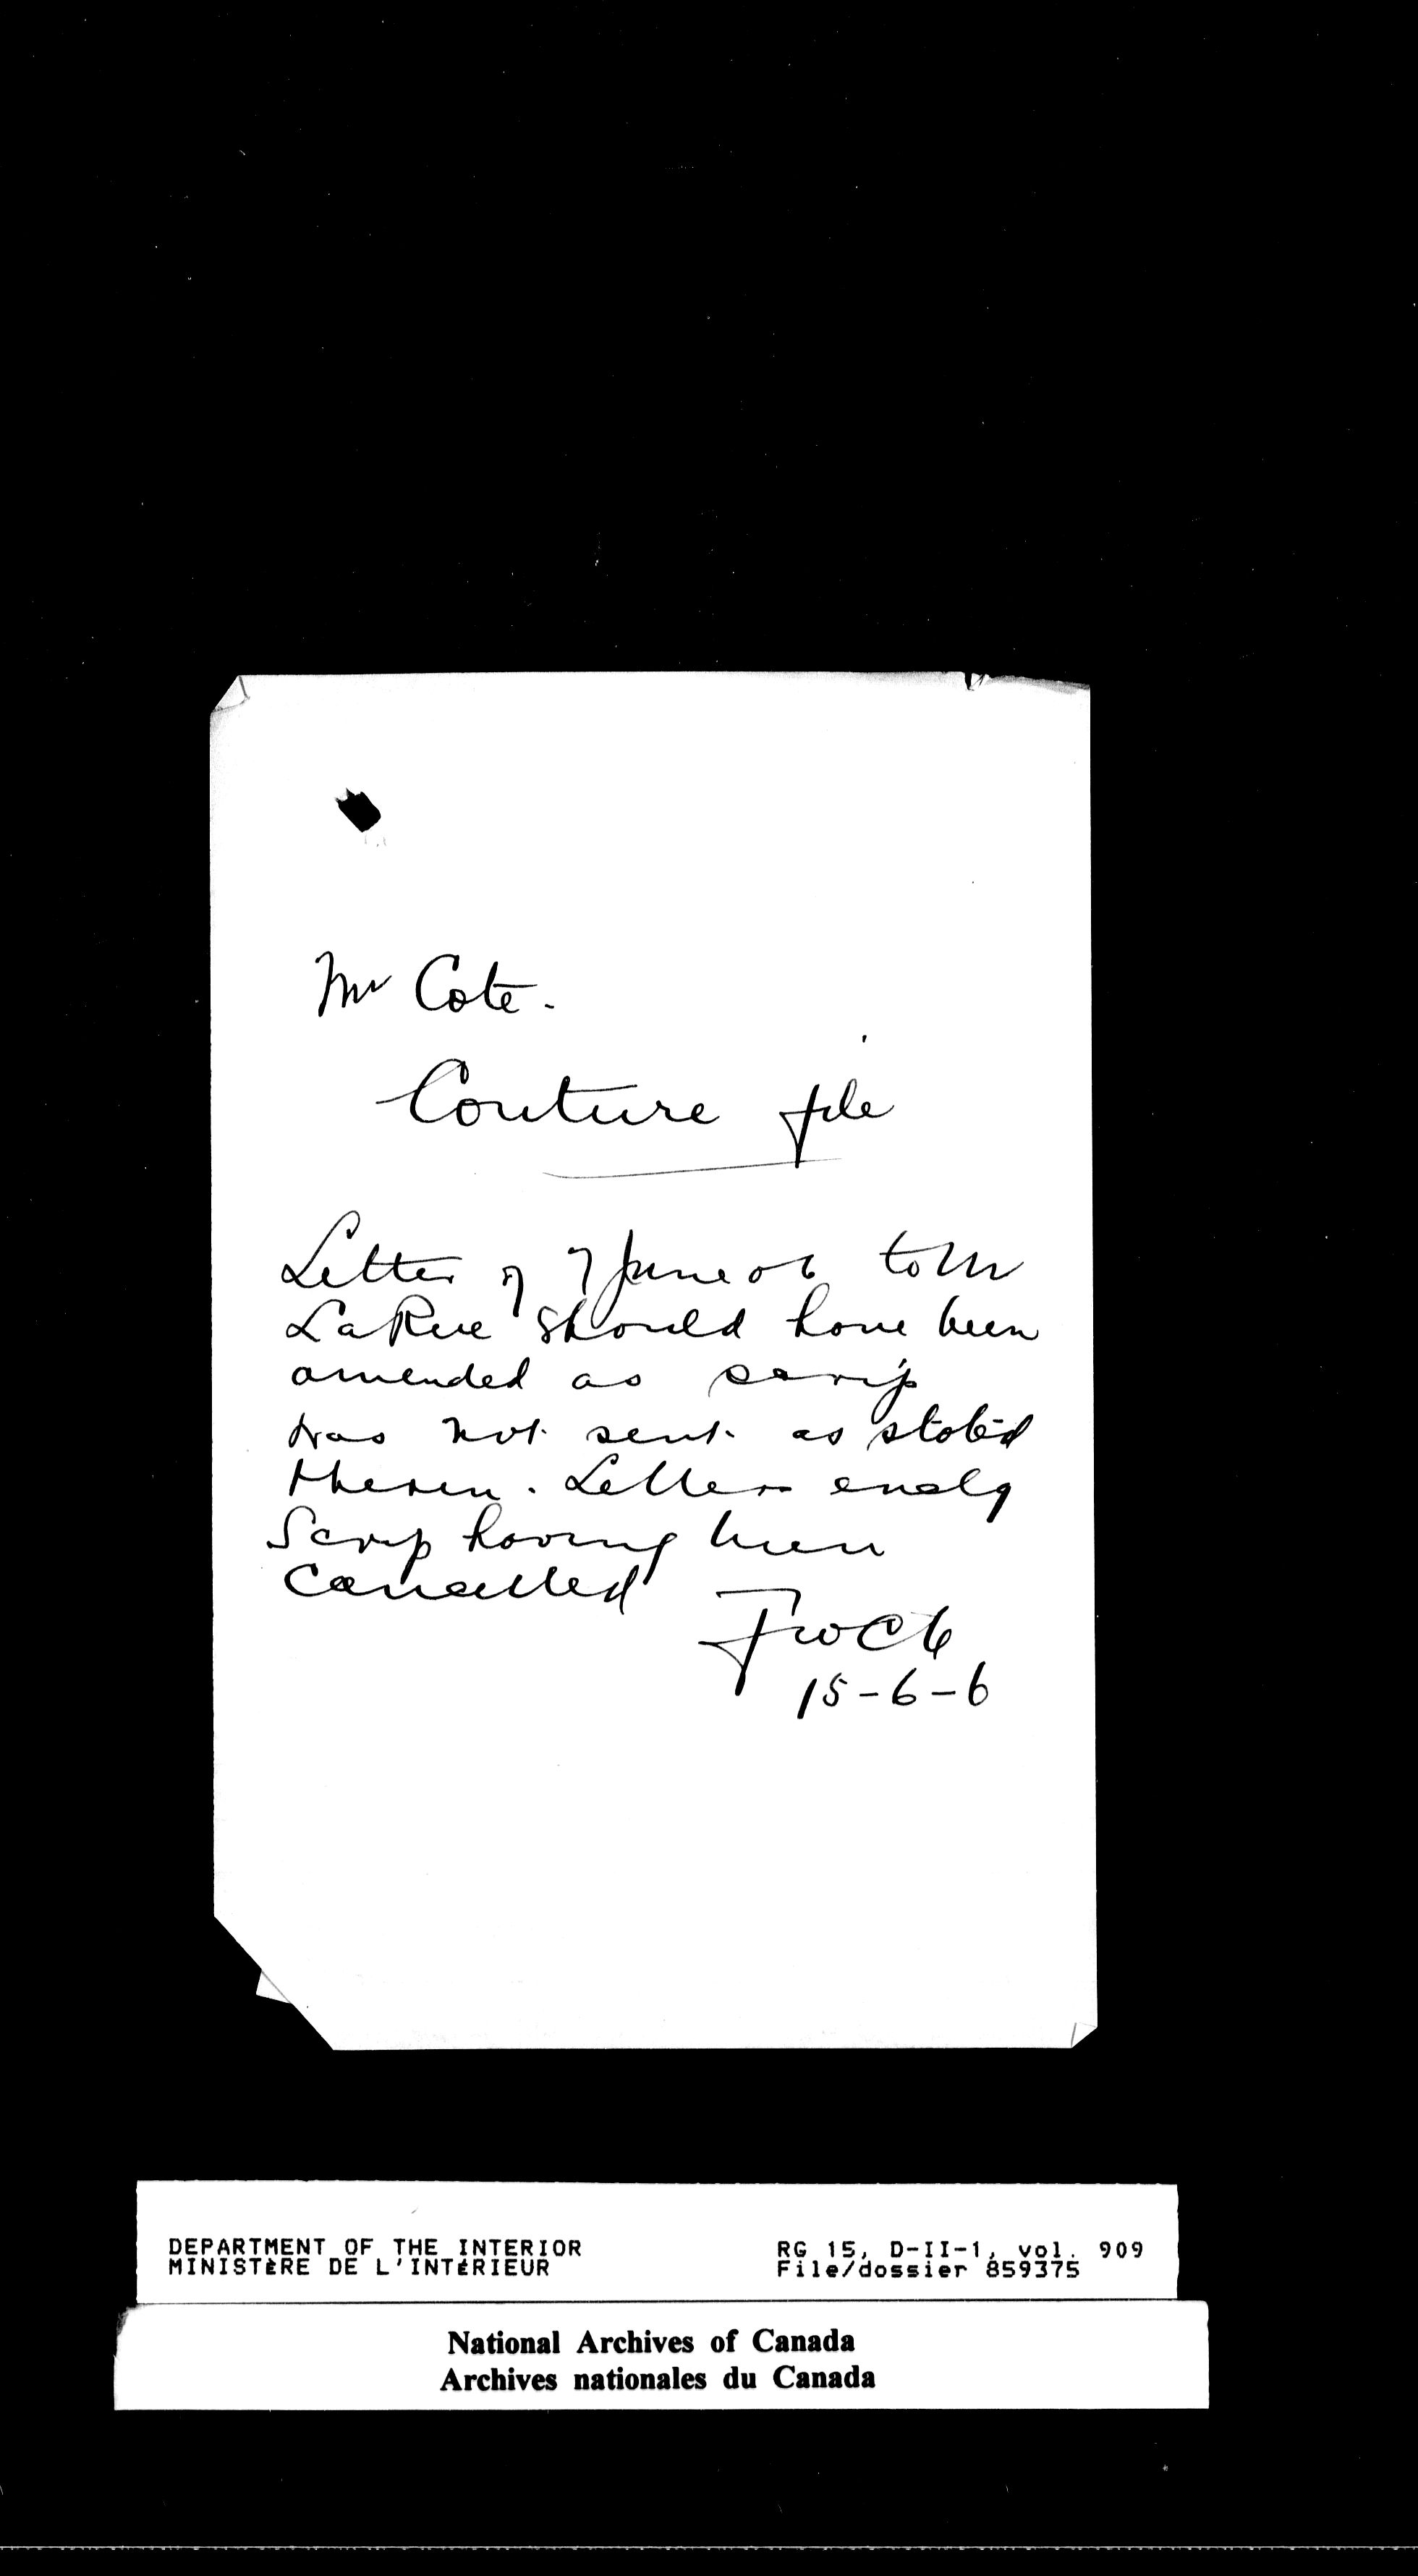 Mr Cote.
Couture file
Letter of 7 June 06 to Mr
LaRue should have been
amended as scrip
was not sent as stated
therein. Letters enclg
Scrip having been
Cancelled
15-6-6
DEPARTMENT OF THE INTERIOR RG 15, D-II-1, vol. 909
MINISTÈRE DE L'INTÉRIEUR File/dossier 859375
National Archives of Canada
Archives nationales du Canada